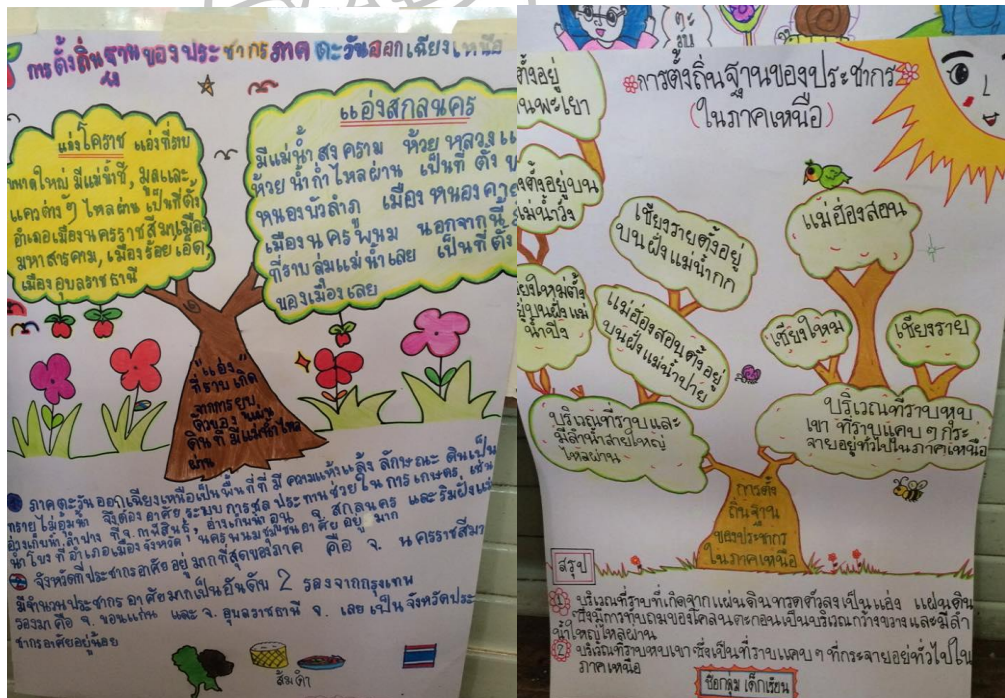 การตั้งถิ่นฐานของประชากรภาคตะวันออกเฉียงเหนือ
แอ่งโคราช แอ่งที่ราบ
ขนาดใหญ่ มีแม่น้ำชี, มูลและ
แควต่างๆ ไหลผ่าน เป็นที่ตั้ง
อำเภอเมืองนครราชสีมา เมือง
มหาสารคาม, เมืองร้อยเอ็ด,
เมืองอุบลราชธานี
แอ่งสกลนคร
มีแม่น้ำสงคราม ห้วยหลวง
ห้วยน้ำก่ำไหลผ่าน เป็นที่ตั้ง
หนองบัวลำภู เมืองหนองคาย
เมืองนครพนม นอกจากนี้
ที่ราบลุ่มแม่น้ำเลย เป็นที่ตั้ง
ของเมืองเลย
"แอ่ง"
ที่ราบเกิด
จากการยุบ
ตัวของแผ่น
ดินที่มีแม่น้ำไหล
ผ่าน
ภาคตะวันออกเฉียงเหนือเป็นพื้นที่ที่มีความแห้งแล้ง ลักษณะดินเป็น
ทราย ไม่อุ้มน้ำ จึงต้องอาศัยระบบการชลประทานช่วยในการเกษตร, เช่น
อ่างเก็บน้ำลำปาว ที่จ.กาฬสินธุ์, อ่างเก็บน้ำอูน จ.สกลนคร และริมฝั่งแม่
น้ำโขง ที่อำเภอเมืองจังหวัดนครพนมชุมชนอาศัยอยู่มาก
จังหวัดที่ประชากรอาศัยอยู่มากที่สุดของภาค คือ จ. นครราชสีมา
มีจำนวนประชากรอาศัยมากเป็นอันดับ 2 รองจากกรุงเทพ
รองมา คือ จ. ขอนแก่น และ จ. อุบลราชธานี จ. เลย เป็นจังหวัดประ
ชากรอาศัยอยู่น้อย
ส้มตำ
การตั้งถิ่นฐานของประชากร
(ในภาคเหนือ)
ตั้งอยู่
พะเยา
ตั้งอยู่บน
แม่น้ำวัง
เชียงรายตั้งอยู่
บนฝั่งแม่น้ำกก
ตั้ง
อยู่บนฝั่งแม่
น้ำปิง
แม่ฮ่องสอนตั้งอยู่
บนฝั่งแม่น้ำปาย
แม่ฮ่องสอน
เชียงใหม่
เชียงราย
บริเวณที่ราบและ
มีลำน้ำสายใหญ่
ไหลผ่าน
บริเวณที่ราบหุบ
เขา ที่ราบแคบๆ กระ
จายอยู่ทั่วไปในภาคเหนือ
การตั้ง
ถิ่นฐาน
ของประชากร
ในภาคเหนือ
สรุป
1 บริเวณที่ราบที่เกิดจากแผ่นดินทรุดตัวลงเป็นแอ่ง แผ่นดิน
ซึ่งมีการทับถมของโคลนตะกอนเป็นบริเวณกว้างขวางและมีลำ
น้ำใหญ่ไหลผ่าน
2 บริเวณที่ราบหุบเขา ซึ่งเป็นที่ราบแคบๆ ที่กระจายอยู่ทั่วไปใน
ภาคเหนือ
ชื่อกลุ่ม เด็กเรียน